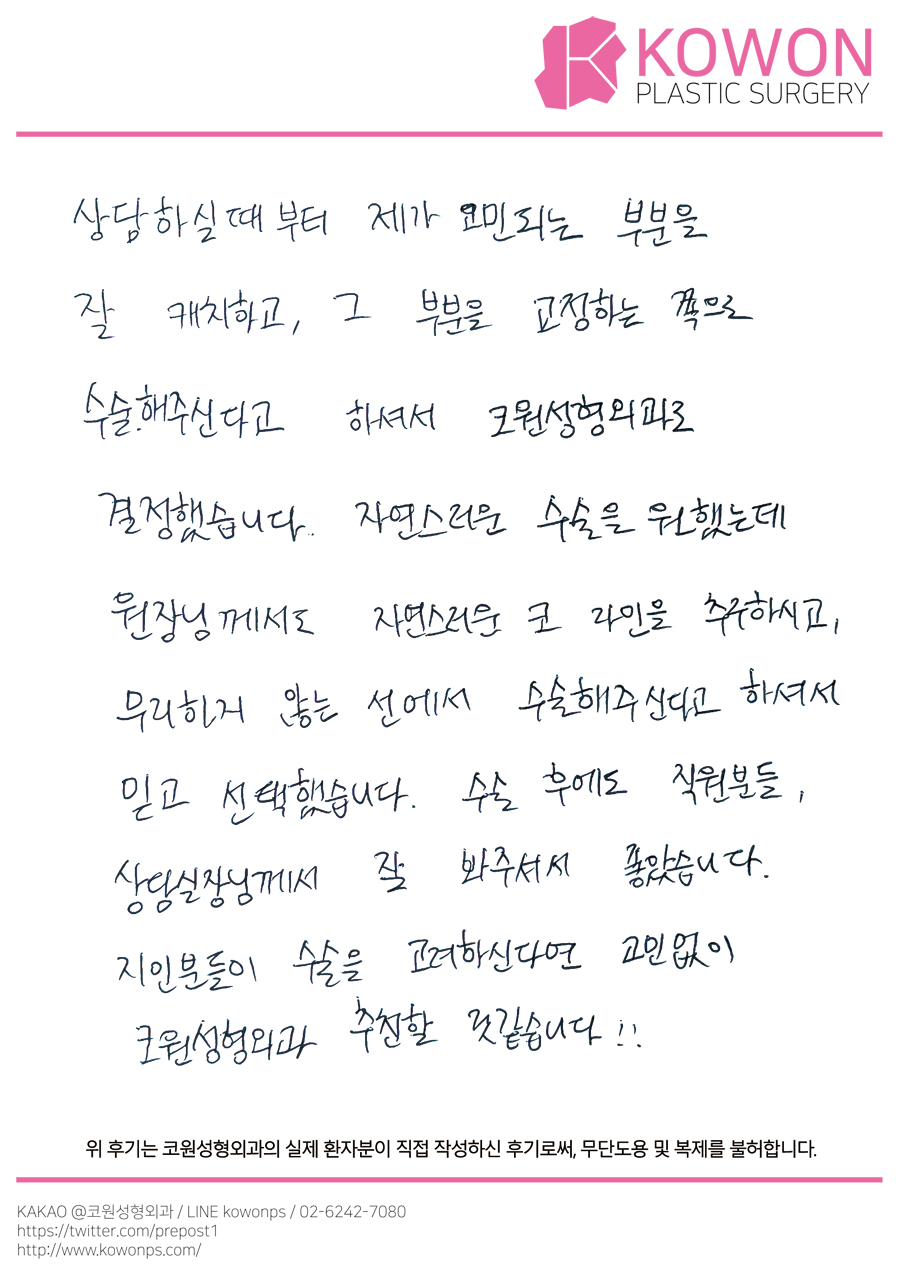 KOWON
PLASTIC SURGERY
상담하실때부터 제가 고민되는 부분을
잘 캐치하고, 그 부분을 교정하는 쪽으로
수술해주신다고 하셔서 코원성형외과로
결정했습니다. 자연스러운 수술을 원했는데
원장님께서도 자연스러운 코 라인을 추구하시고,
무리하지 않는 선에서 수술해주신다고 하셔서
믿고 선택했습니다. 수술 후에도 직원분들,
상담실장님께서 잘 봐주셔서 좋았습니다.
지인분들이 수술을 고려하신다면 고민없이
코원성형외과 추천할 것같습니다!!
위 후기는 코원성형외과의 실제 환자분이 직접 작성하신 후기로써, 무단도용 및 복제를 불허합니다.
KAKAO @코원성형외과 / LINE kowonps / 02-6242-7080
https://twitter.com/prepost1
http://www.kowonps.com/